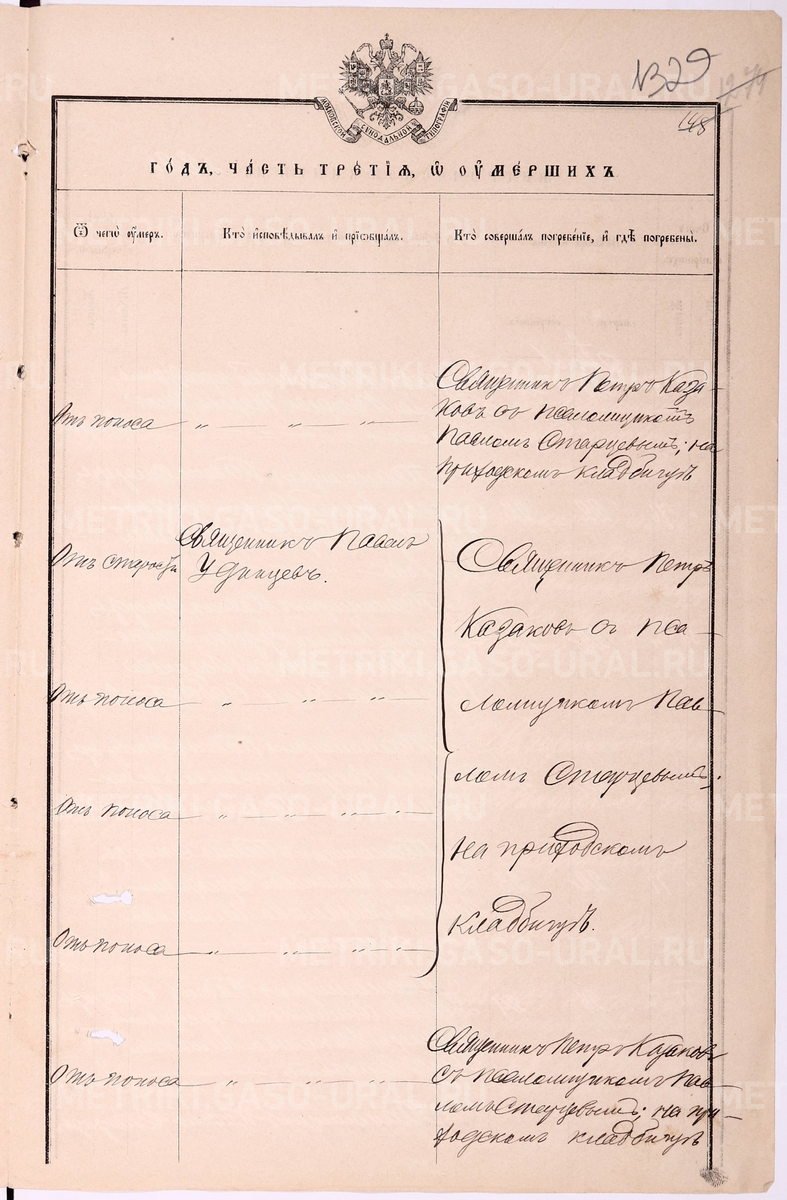 №329
148
МОСКОВСКОЙ СѴНОДАЛЬНОЙ ТИПОГРАФІИ
ГО́ДЪ, ЧА́СТЬ ТРЕ́ТІѦ, Ѡ ОУМЕ́РШИХЪ
Ѿ чегѡ̀ оу҆́меръ.
Кто̀ и҆сповѣ́дывалъ и҆ прїѡбща́лъ.
Кто̀ соверша́лъ погребе́нїе, и҆ гдѣ̀ погребены̀.
Отъ поноса
„ „ „
Священникъ Петръ Каза-
ковъ съ псаломщикомъ
Павломъ Старцевымъ; на
приходскомъ кладбищѣ
Отъ старости
Священникъ Павелъ
Удинцевъ.
Священникъ Петръ
Казаковъ съ пса-
ломщикомъ Пав-
ломъ Старцевымъ;
на приходскомъ
кладбищѣ.
Отъ поноса
„ „ „
Отъ поноса
„ „ „
Отъ поноса
„ „ „ „
Отъ поноса
„ „ „ „
Священникъ Петръ Казаковъ
съ псаломщикомъ Пав-
ломъ Старцевымъ; на при-
ходскомъ кладбищѣ
METRIKI.GASO-URAL.RU